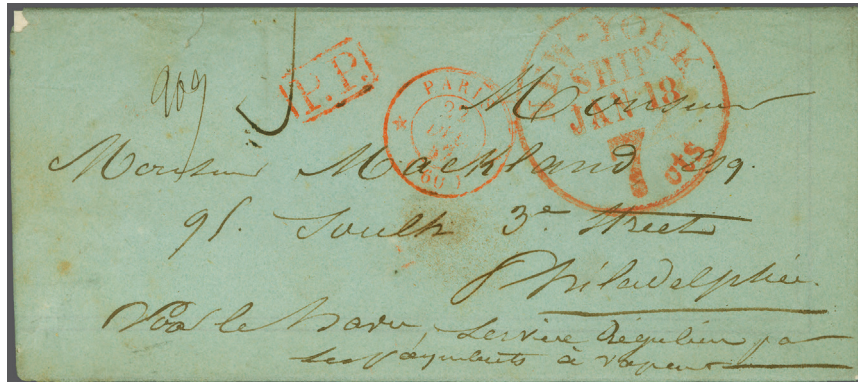 909
P.P.
PARIS
(60)
NEW-YORK
SHIP
JAN 18
7 cts
Monsieur
Monsieur Mackland Esq.
91. South 3e Street
Philadelphie.
Voie le Havre, Service Régulier par
les paquebots à vapeur